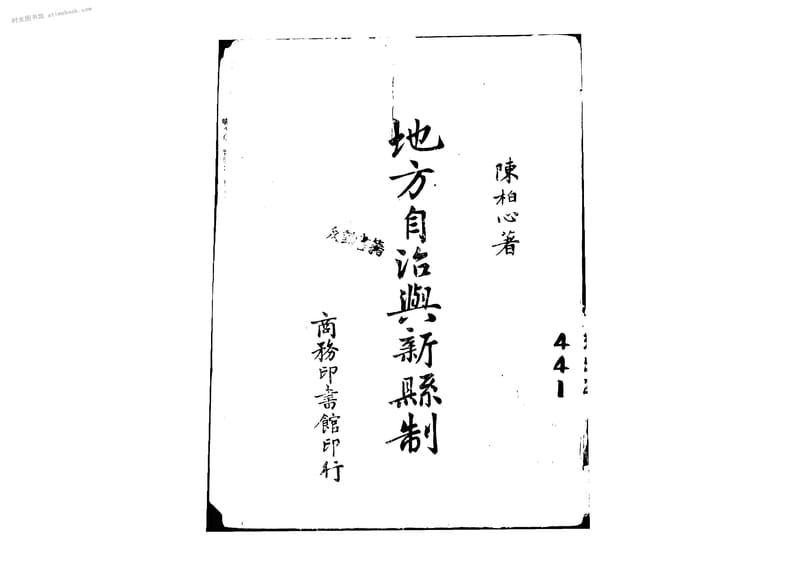 时光图书馆 atimebook.com
陳柏心著
地方自治與新縣制
商務印書館印行
441